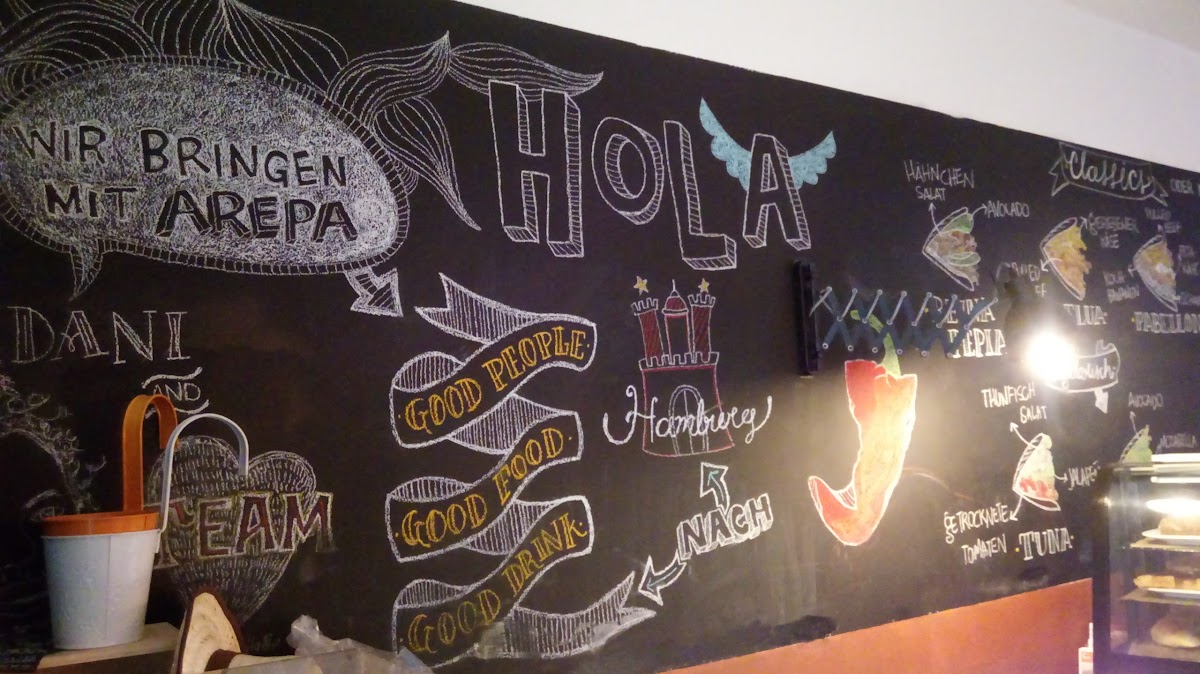 WIR BRINGEN
MIT AREPA
HOLA
DANI
AND
TEAM
GOOD PEOPLE
GOOD FOOD
GOOD DRINK
Hamburg
NACH
Classics
HÄHNCHEN
SALAT
AVOCADO
PABELLON
THUNFISCH
SALAT
JALAPE
GETROCKNETE
TOMATEN
·TUNA·
AVOCADO